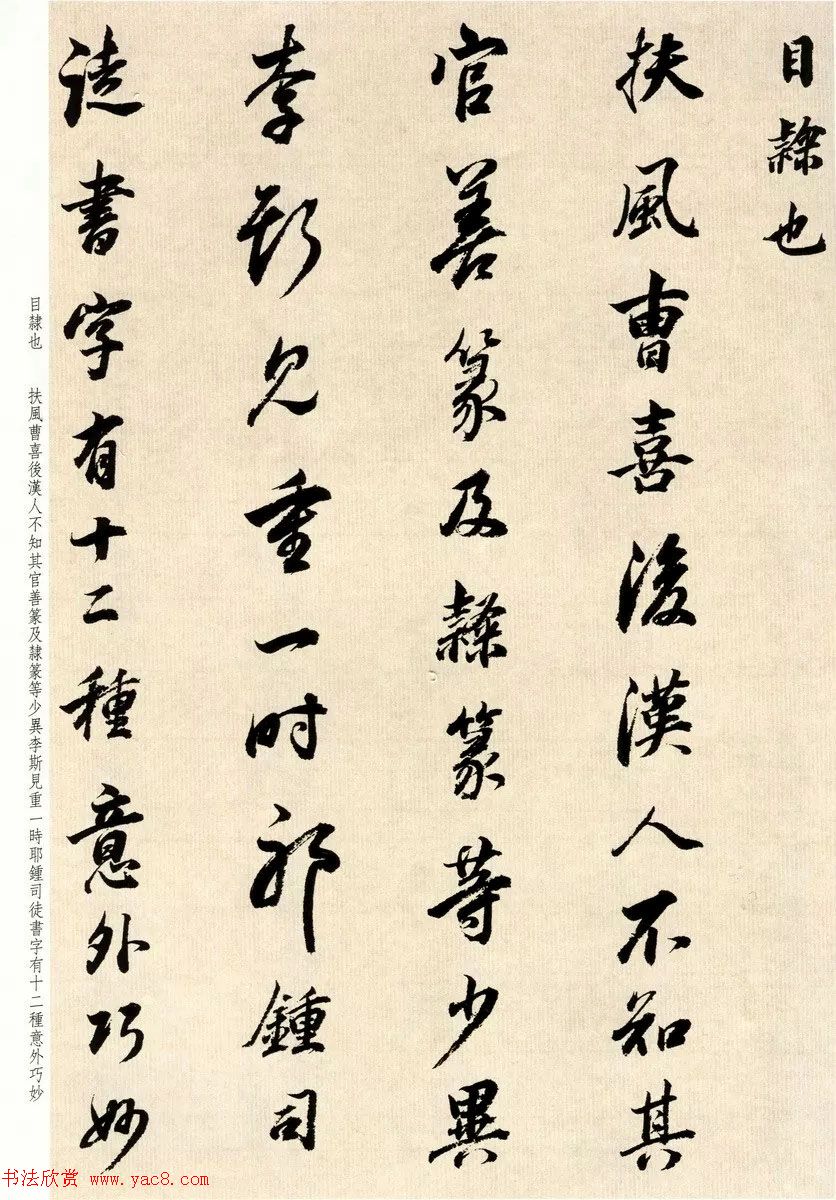 目隸也
扶風曹喜後漢人不知其
官善篆及隸篆等少異
李斯見重一时耶鍾司
徒書字有十二種意外巧妙
目隸也　扶風曹喜後漢人不知其官善篆及隸篆等少異李斯見重一時耶鍾司徒書字有十二種意外巧妙
书法欣赏 www.yac8.com